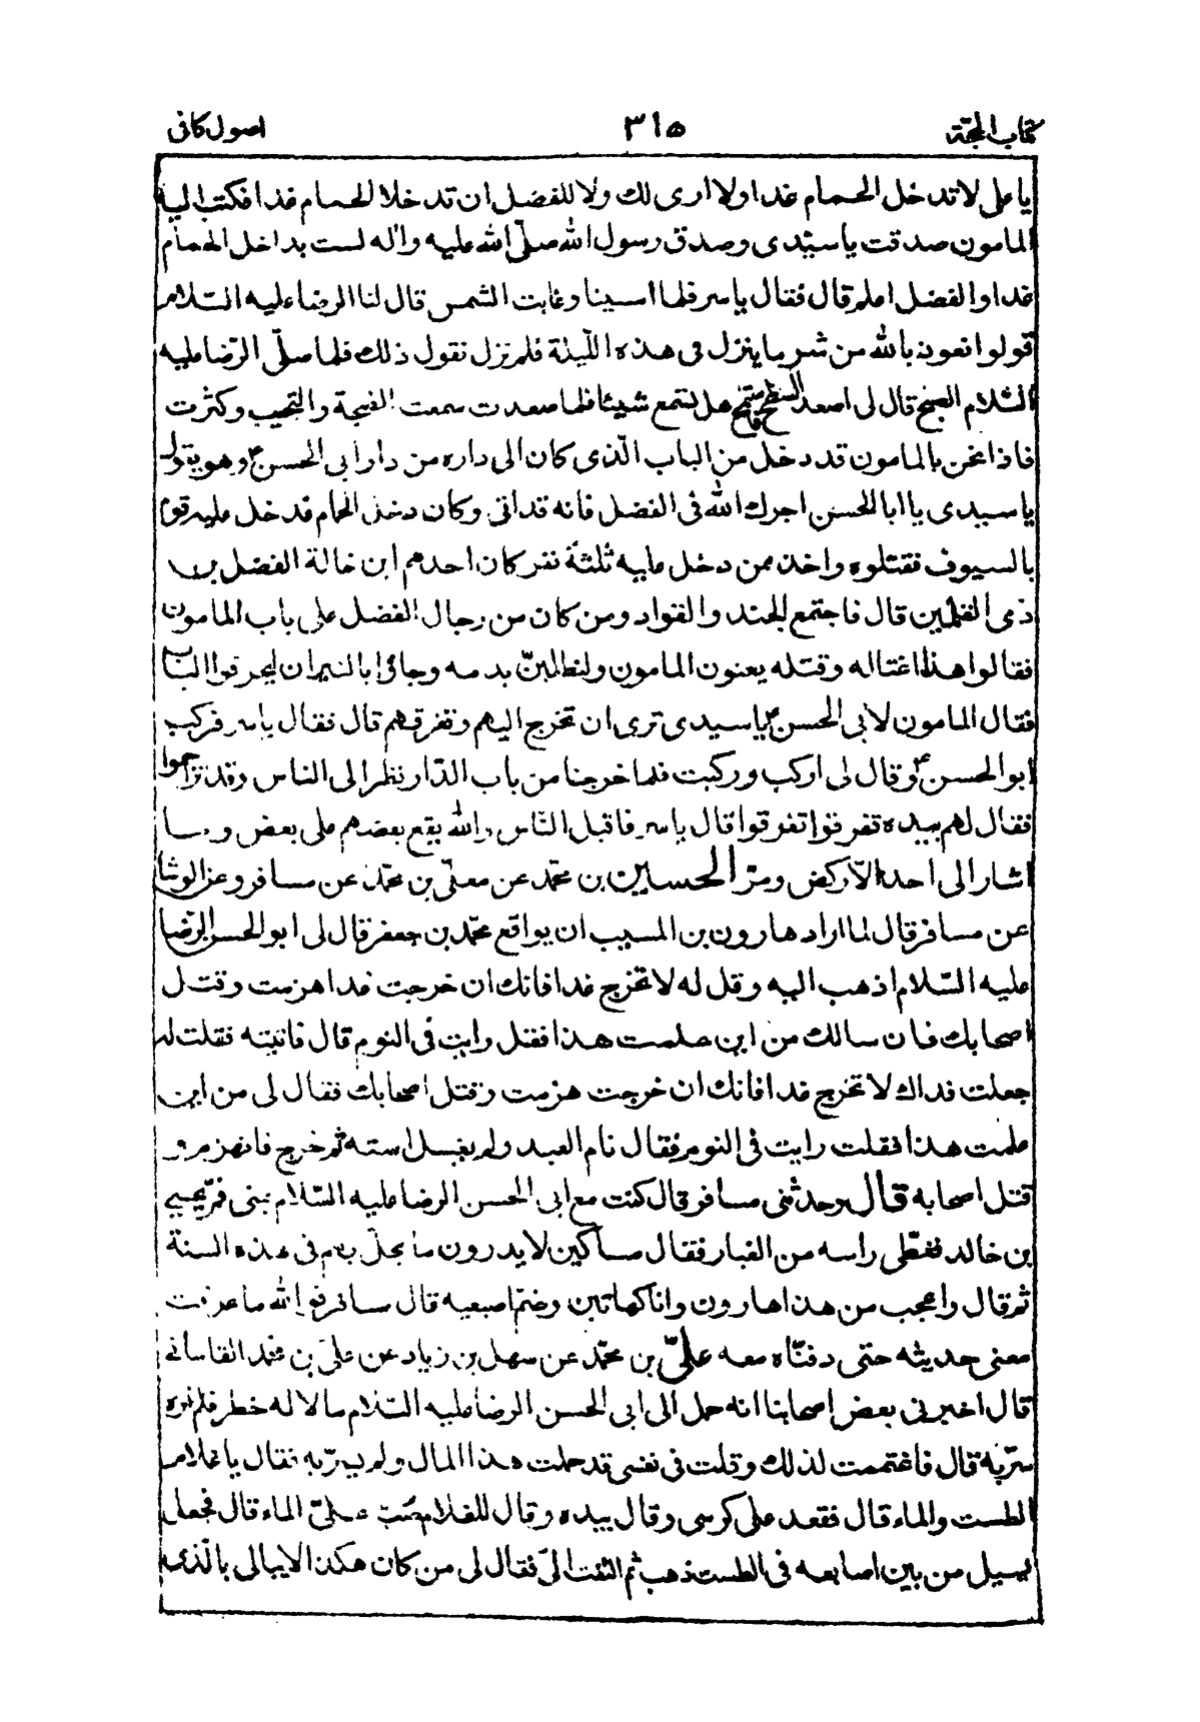 كتاب الحجة ٣١٥ اصول كافى
يا على لا تدخل الحمام غدا ولا ارى لك ولا للفضل ان تدخلا الحمام غدا فكتب اليه
المامون صدقت يا سيّدى وصدق رسول الله صلّى الله عليه واله لست بداخل الحمام
غدا والفضل اعلم قال فقال ياسر فلما امسينا وغابت الشمس قال لنا الرضا عليه السّلام
قولوا نعوذ بالله من شر ما ينزل فى هذه اللّيلة فلم نزل نقول ذلك فلما صلّى الرّضا عليه
السّلام الصبح قال لى اصعد السطح فاستمع هل تسمع شيئا فلما صعدت سمعت الضجة والنحيب وكثرت
فاذا نحن بالمامون قد دخل من الباب الّذى كان الى داره من دار ابى الحسن ع وهو يقول
يا سيدى يا ابا الحسن اجرك الله فى الفضل فانه قد اتى وكان دخل الحمام فدخل عليه قوم
بالسيوف فقتلوه واخذ ممن دخل عليه ثلثة نفر كان احدهم ابن خالة الفضل بن
ذى القلمين قال فاجتمع الجند والقواد ومن كان من رجال الفضل على باب المامون
فقالوا هذا اغتاله وقتله يعنون المامون ولنطلبنّ بدمه وجاؤا بالنيران ليحرقوا الباب
فقال المامون لابى الحسن ع يا سيدى ترى ان تخرج اليهم وتفرقهم قال فقال ياسر فركب
ابو الحسن ع وقال لى اركب وركبت فلما خرجنا من باب الدّار نظر الى الناس وقد تزاحموا
فقال لهم بيده تفرقوا تفرقوا قال ياسر فاقبل النّاس والله يقع بعضهم على بعض وما
اشار الى احد الّا ركض ومرّ الحسين بن محمّد عن معلّى بن محمّد عن مسافر وعن الوشا
عن مسافر قال لما اراد هارون بن المسيب ان يواقع محمّد بن جعفر قال لى ابو الحسن الرّضا
عليه السّلام اذهب اليه وقل له لا تخرج غدا فانك ان خرجت غدا هزمت وقتل
اصحابك فان سالك من اين علمت هذا فقل رايت فى النوم قال فاتيته فقلت له
جعلت فداك لا تخرج غدا فانك ان خرجت هزمت وقتل اصحابك فقال لى من اين
علمت هذا فقلت رايت فى النوم فقال نام العبد ولم يغسل استه ثم خرج فانهزم و
قتل اصحابه قال وحدثنى مسافر قال كنت مع ابى الحسن الرضا عليه السّلام بمنى فمرّ يحيى
بن خالد فغطّى راسه من الغبار فقال مساكين لا يدرون ما يحلّ بهم فى هذه السنة
ثم قال واعجب من هذا هارون وانا كهاتين وضمّ اصبعيه قال مسافر فو الله ما عرفت
معنى حديثه حتى دفنّاه معه علىّ بن محمّد عن سهل بن زياد عن علىّ بن محمّد القاسانى
قال اخبرنى بعض اصحابنا انه حمل الى ابى الحسن الرضا عليه السّلام مالا له خطر فلم اره
سرّ به قال فاغتممت لذلك وقلت فى نفسى قد حملت هذا المال ولم يسرّ به فقال يا غلام
الطست والماء قال فقعد على كرسى وقال بيده وقال للغلام صبّ علىّ الماء قال فجعل
يسيل من بين اصابعه فى الطست ذهب ثم التفت الىّ فقال لى من كان هكذا لا يبالى بالّذى